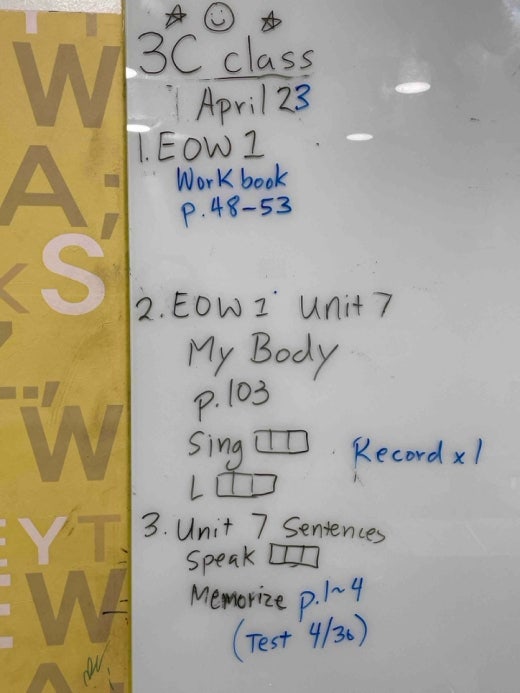 3C class
April 23
1. EOW 1
Workbook
p. 48-53
2. EOW 1 Unit 7
My Body
p. 103
Sing
Record x 1
L
3. Unit 7 Sentences
Speak
Memorize p.1~4
(Test 4/30)
W
A;
S
W
EYT
W
A